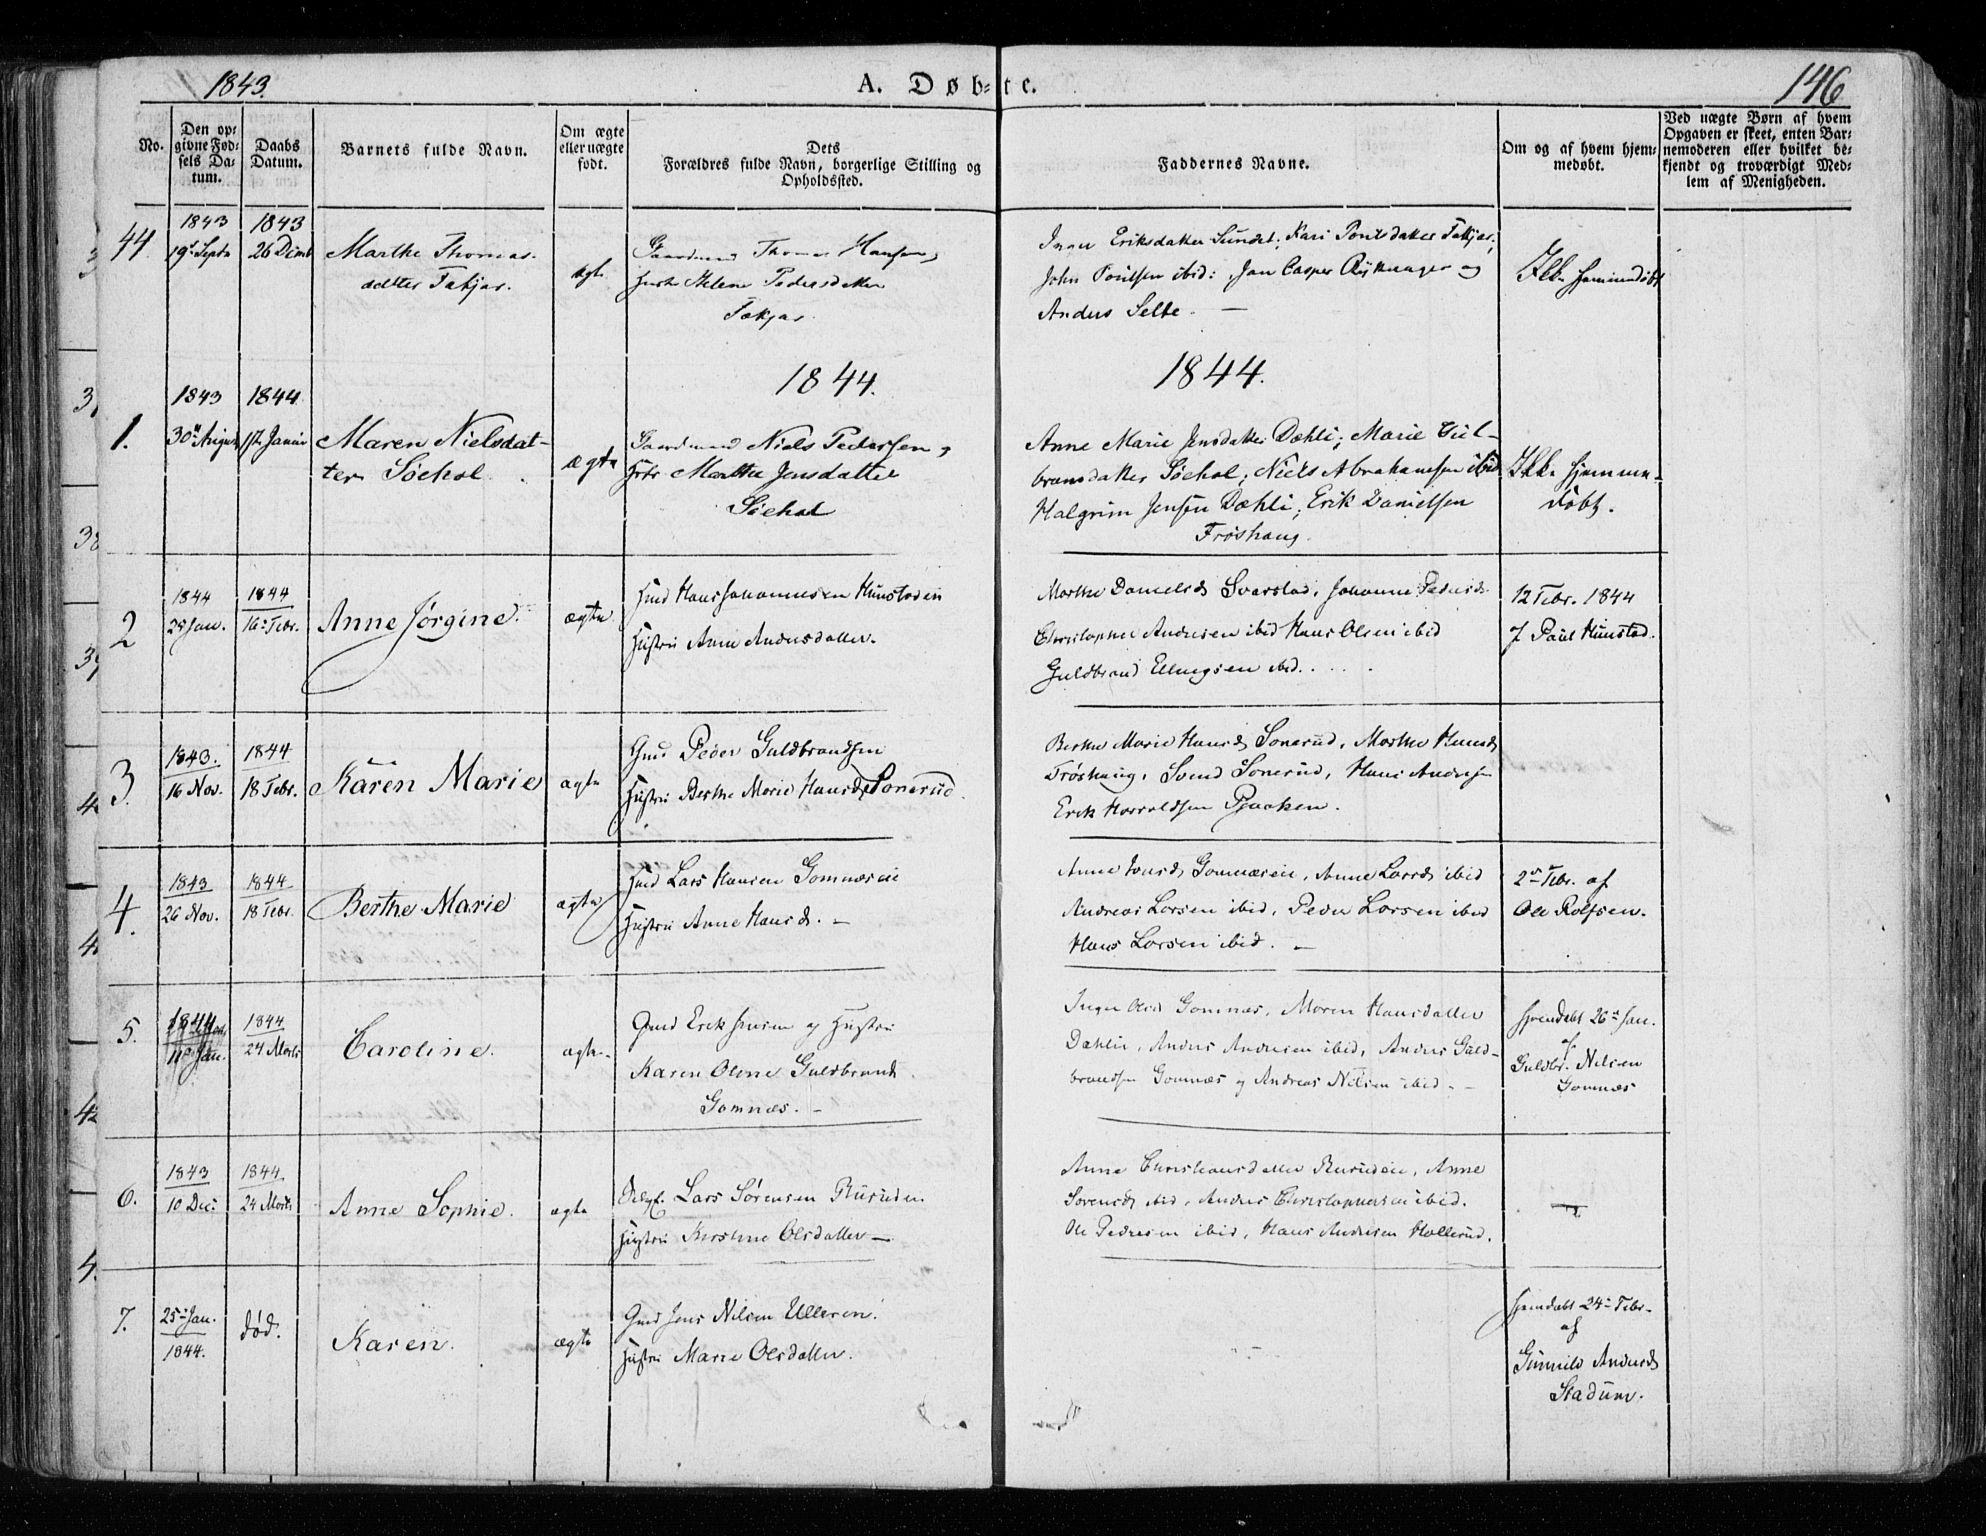 1843.
A. Døb-te.
146
No.
Den op-
givne Fød-
sels Da-
tum.
Daabs
Datum.
Barnets fulde Navn.
Om ægte
eller uægte
født.
Dets
Forældres fulde Navn, borgerlige Stilling og
Opholdssted.
Faddernes Navne.
Om og af hvem hjem-
medøbt.
Ved uægte Børn af hvem
Opgaven er skeet, enten Bar-
nemoderen eller hvilket be-
kjendt og troværdigt Med-
lem af Menigheden.
44.
1843
19de Septr
1843
26 Decmb
Marthe Thomas-
datter
ægte
Gaardmand Thomas Hansen,
Helene Pedersdatter
Eriksdatter Sundet; Kari
John Poulsen ibid: Jan Casper og
Anders Selte. —
Ikke hjemmedøbt
1844.
1844.
1.
1843
30te August
1844
1ste Januar
Maren Nielsdat-
ter Søehol.
ægte
Gaardmand Niels Pedersen,
Marthe Jensdatter
Søehol
Anne Marie Jensdatter Dæhli; Marie Gul-
bransdatter Søehol; Niels Abrahamsen ibid
Halgrim Jensen Dæhli; Erik Danielsen
Frøshaug.
Ikke hjemme-
døbt.
2
1844
25 Jan.
1844
16de Febr.
Anne Jørgine.
ægte
Hmd Hans Johannesen Hunstadeie
Hustru Anne Andersdatter.
Marthe Danielsd. Svarstad, Johanne Pedersd.
Christopher Andersen ibid Hans Olsen ibid
Guldbrand Ellingsen ibid.
12 Febr. 1844
af Paul Hunstad.
3.
1843.
16 Nov.
1844
18 Febr.
Karen Marie
ægte
Gmd Peder Guldbrandsen
Hustru Berthe Marie Hansd. Sonerud.
Berthe Marie Hansd. Sonerud, Marthe Hansd.
Frøshaug, Svend Sonerud, Hans Andersen
Erik Harraldsen Pjaaken.
4.
1843
26 Nov.
1844
18 Febr.
Berthe Marie
ægte
Hmd Lars Hansen Gomnæseie
Hustru Anne Hansd. —
Anne Gomnæseie, Anne Larsd. ibid
Andreas Larsen ibid, Peder Larsen ibid
Hans Larsen ibid. —
2den Febr. af
Ole Rolfsen.
5.
1844
11te Jan.
1844
24 Marts
Caroline.
ægte
Gmd Erik Jensen og Hustru
Karen Oline Guldbrands
Gomnæs. —
Inger Olsd Gomnæs, Maren Hansdatter
Dæhlie, Anders Andersen ibid, Anders Guld-
brandsen Gomnæs og Andreas Nilsen ibid. —
Hjemdøbt 26de Jan.
af
Guldbr. Nilsen
Gomnæs
6.
1843
10 Dec:
1844.
24 Marts
Anne Sophie.
ægte
Lars Sørensen Rusuden
Hustru Kirstine Olsdatter —
Anne Christiansdatter Rusudeie, Anne
Sørensd. ibid, Anders Christophersen ibid.
Ole Pedersen ibid, Hans Andersen Hollerud.
7.
25de Jan.
1844.
død.
Karen.
ægte
Gmd Jens Nilsen Ulleren.
Hustru Marie Olsdatter.
Hjemdøbt 24de Febr.
af
Gunnild Andersd
Stadum.